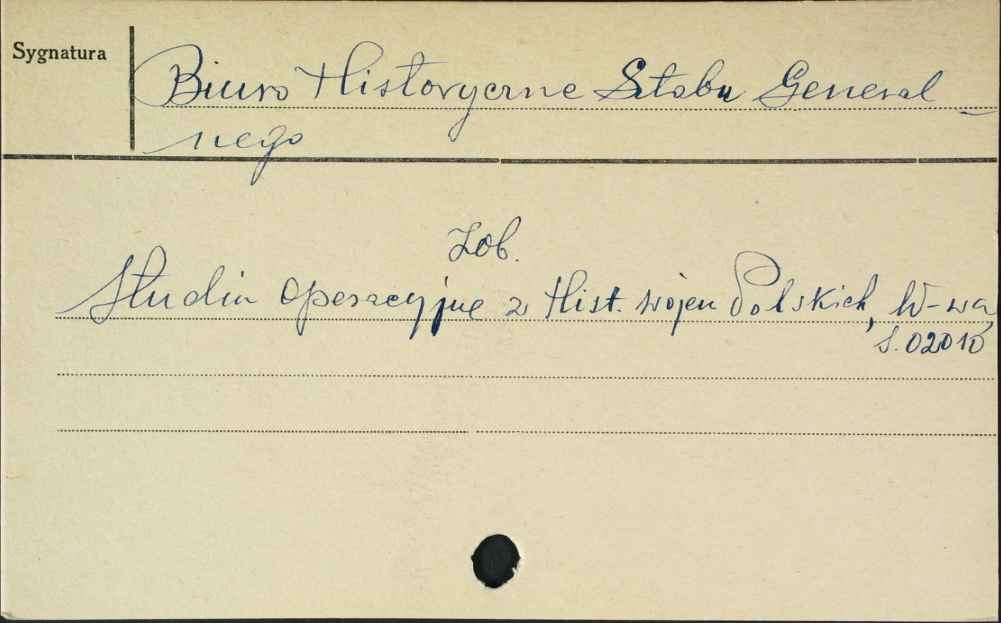 Sygnatura
Biuro Historyczne Sztabu General-
nego
Zob.
Studia operacyjne z Hist. wojen Polskich, W-wa,
S.02010